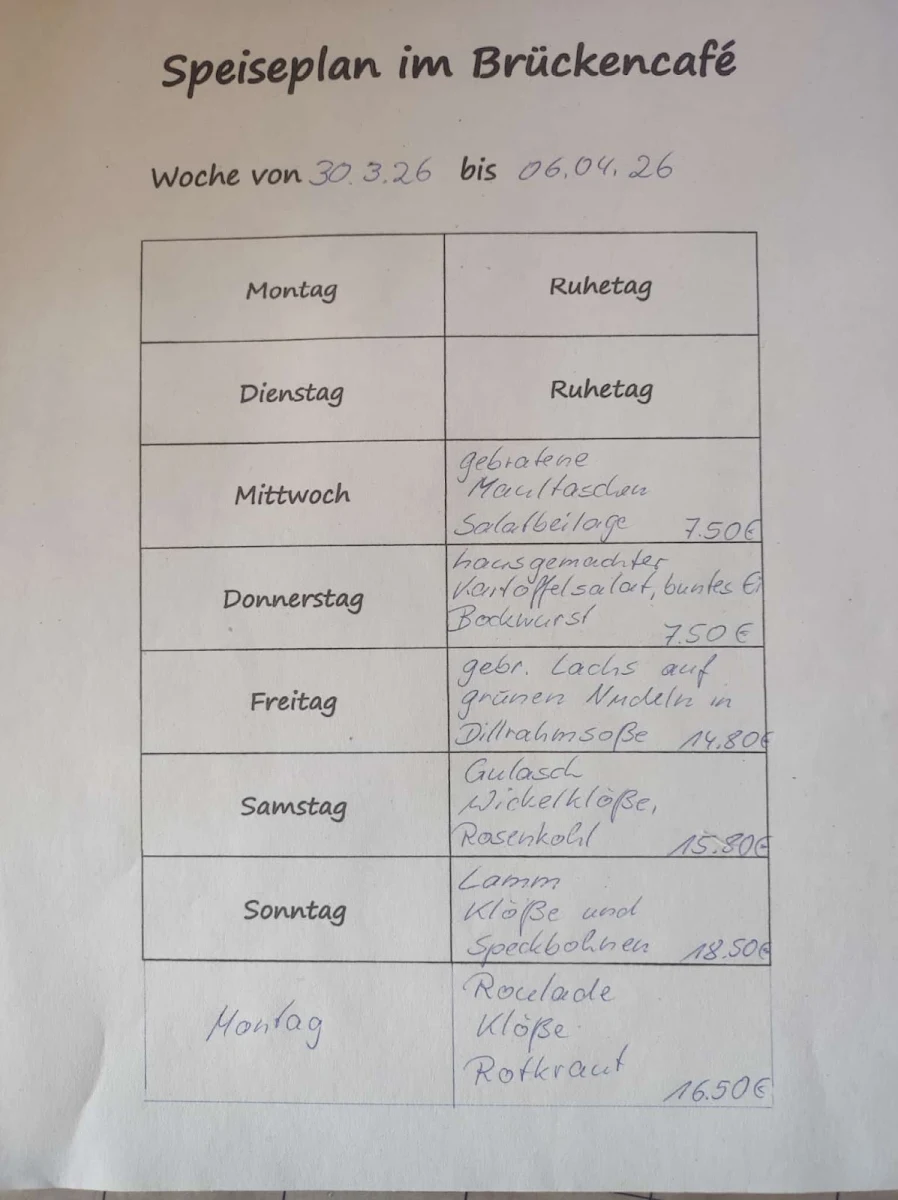 Speiseplan im Brückencafé
Woche von 30.3.26 bis 06.04.26
Montag Ruhetag
Dienstag Ruhetag
Mittwoch
gebratene
Maultaschen
Salatbeilage 7.50€
Donnerstag
hausgemachter
Kartoffelsalat, buntes Ei
Bockwurst
7.50€
Freitag
gebr. Lachs auf
grünen Nudeln in
Dillrahmsoße 14.80€
Samstag
Gulasch
Wickelklöße,
Rosenkohl 15.80€
Sonntag
Lamm
Klöße und
Speckbohnen 18.50€
Montag
Roulade
Klöße
Rotkraut
16.50€